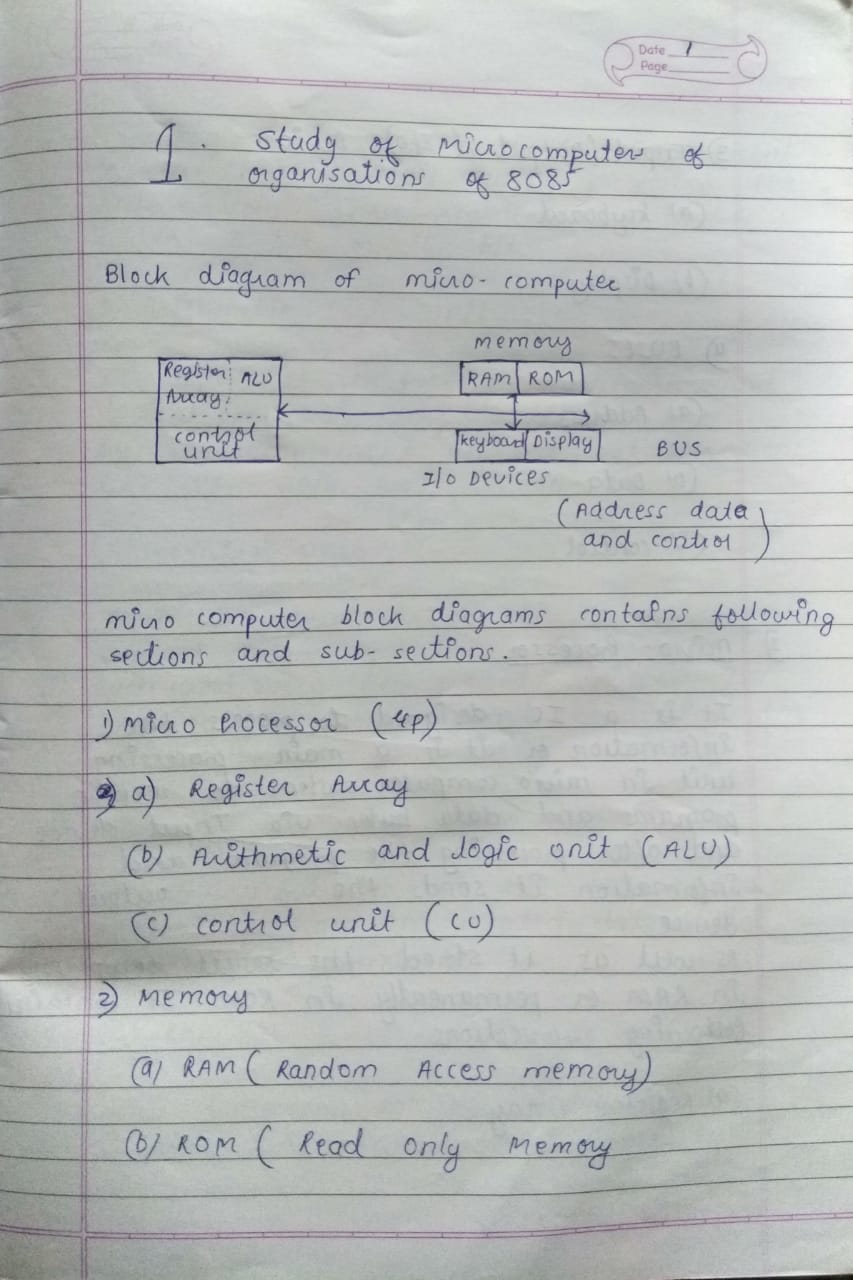 Date 1
Page
1. Study of Microcomputer of
organisations of 8085
Block diagram of micro-computer
memory
Register ALU
Array
RAM ROM
control
unit
keyboard Display
BUS
I/O Devices
(Address data
and control)
micro computer block diagrams contains following
sections and sub-sections.
1) Micro Processor (μp)
a) Register Array
(b) Arithmetic and logic unit (ALU)
(c) control unit (CU)
2) Memory
(a) RAM ( Random Access memory)
(b) ROM ( Read only Memory